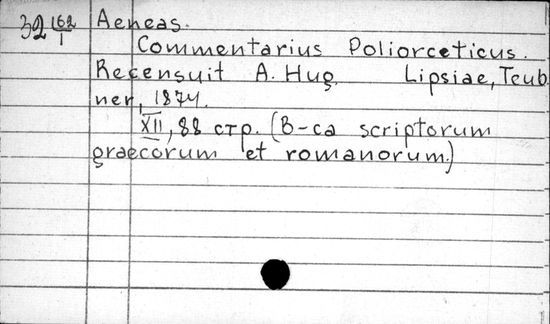 32 162/1 Aeneas.
Commentarius Poliorceticus.
Recensuit A. Hug. Lipsiae, Teub
ner, 1874.
XII, 88 стр. (B-ca scriptorum
graecorum et romanorum.)